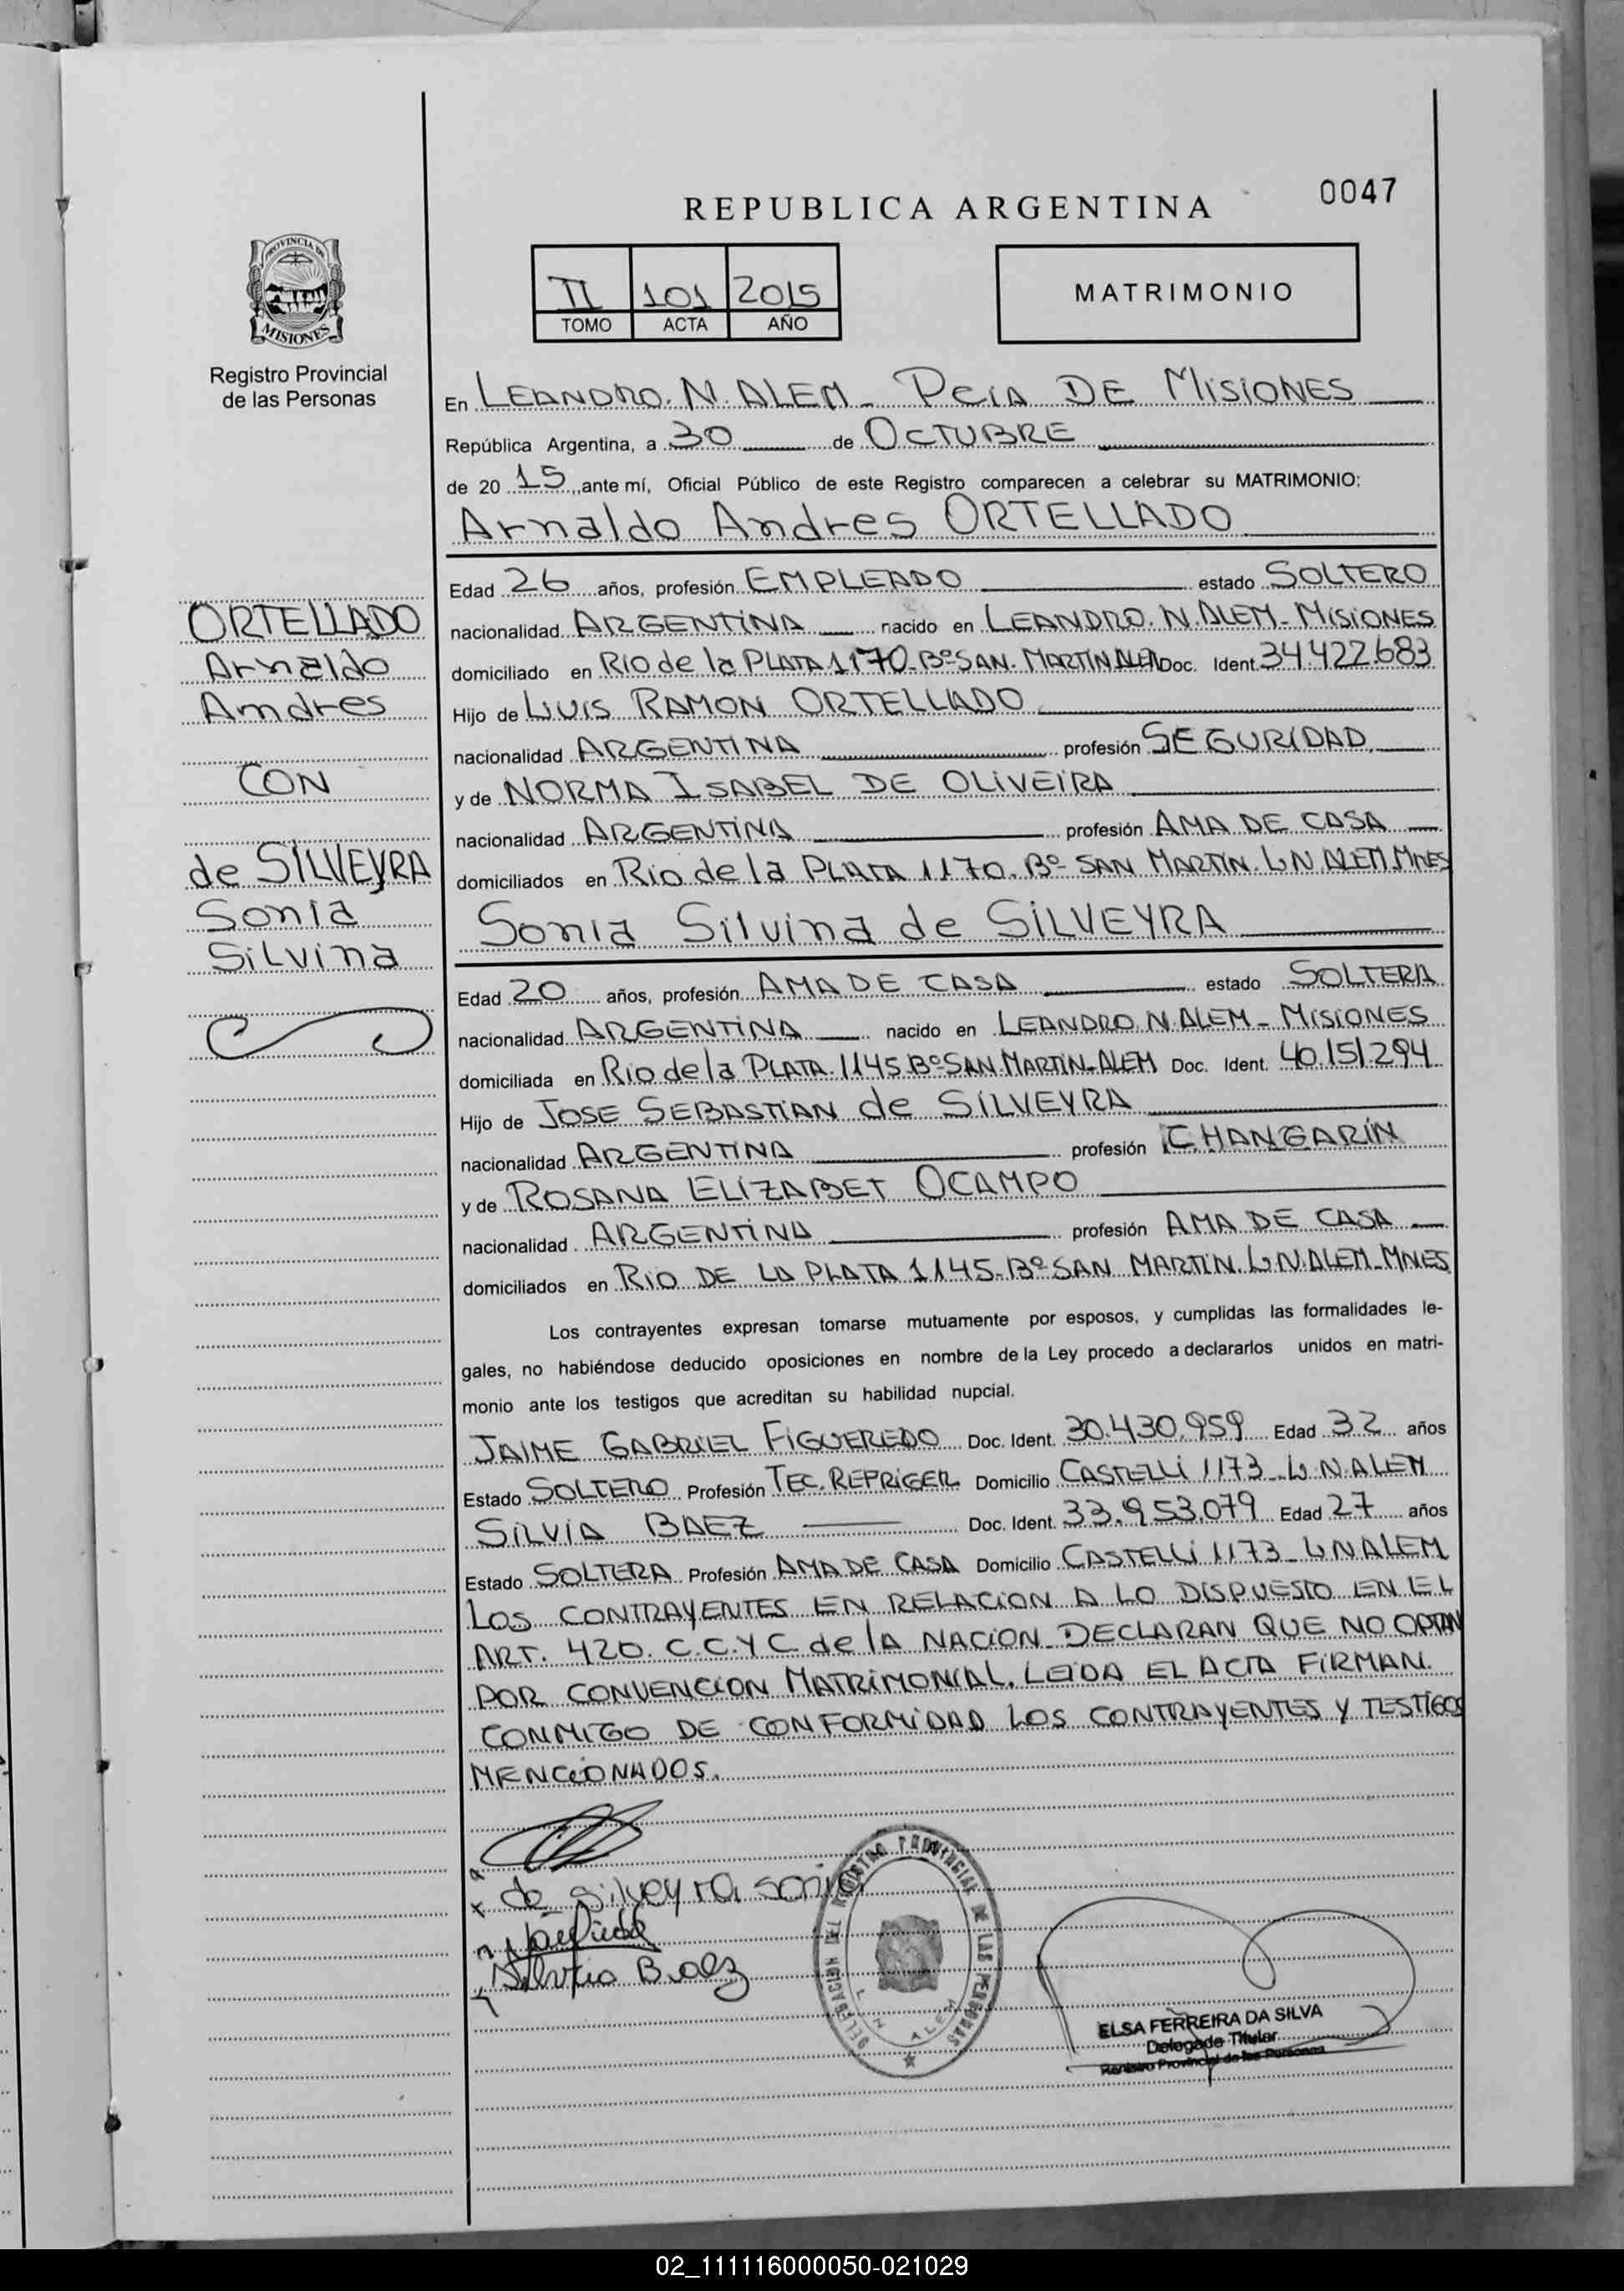 0047
REPUBLICA ARGENTINA
PROVINCIA DE
MISIONES
Registro Provincial
de las Personas
II 101 2015
TOMO ACTA AÑO
MATRIMONIO
En LEANDRO. N. ALEM - PCIA DE MISIONES
República Argentina, a 30 de OCTUBRE
de 20 15, ante mí, Oficial Público de este Registro comparecen a celebrar su MATRIMONIO:
Arnaldo Andres ORTELLADO
ORTELLADO
Arnaldo
Andres
CON
de SILVEYRA
Sonia
Silvina
Edad 26 años, profesión EMPLEADO estado SOLTERO
nacionalidad ARGENTINA nacido en LEANDRO. N. ALEM - MISIONES
domiciliado en Rio de la PLATA 1170. Bº SAN. MARTIN ALEM Doc. Ident. 34.422.683
Hijo de LUIS RAMON ORTELLADO
nacionalidad ARGENTINA profesión SEGURIDAD
y de NORMA ISABEL DE OLIVEIRA
nacionalidad ARGENTINA profesión AMA DE CASA
domiciliados en Rio de la PLATA 1170. Bº SAN MARTIN. L.N. ALEM. MNES
Sonia Silvina de SILVEYRA
Edad 20 años, profesión AMA DE CASA estado SOLTERA
nacionalidad ARGENTINA nacido en LEANDRO N. ALEM - MISIONES
domiciliada en Rio de la PLATA. 1145. Bº SAN MARTIN - ALEM Doc. Ident. 40.151.294
Hijo de JOSE SEBASTIAN de SILVEYRA
nacionalidad ARGENTINA profesión CHANGARIN
y de ROSANA ELIZABET OCAMPO
nacionalidad ARGENTINA profesión AMA DE CASA
domiciliados en RIO DE LA PLATA 1145. Bº SAN MARTIN. L.N. ALEM - MNES
Los contrayentes expresan tomarse mutuamente por esposos, y cumplidas las formalidades le-
gales, no habiéndose deducido oposiciones en nombre de la Ley procedo a declararlos unidos en matri-
monio ante los testigos que acreditan su habilidad nupcial.
JAIME GABRIEL FIGUEREDO Doc. Ident. 30.430.959 Edad 32 años
Estado SOLTERO Profesión TEC. REFRIGER Domicilio CASTELLI 1173 - L. N ALEM
SILVIA BAEZ Doc. Ident. 33.953.079 Edad 27 años
Estado SOLTERA Profesión AMA DE CASA Domicilio CASTELLI 1173 - L N ALEM
LOS CONTRAYENTES EN RELACION A LO DISPUESTO EN EL
ART. 420. C.C.Y C. de lA NACION - DECLARAN QUE NO OPTAN
POR CONVENCION MATRIMONIAL. LEIDA EL ACTA FIRMAN.
CONMIGO DE CONFORMIDAD LOS CONTRAYENTES Y TESTIGOS
MENCIONADOS.
de silveyra sonia
Silvia Baez
DELEGACION DEL REGISTRO PROVINCIAL DE LAS PERSONAS
L. N. ALEM
ELSA FERREIRA DA SILVA
Delegada Titular
Registro Provincial de las Personas
02_111116000050-021029